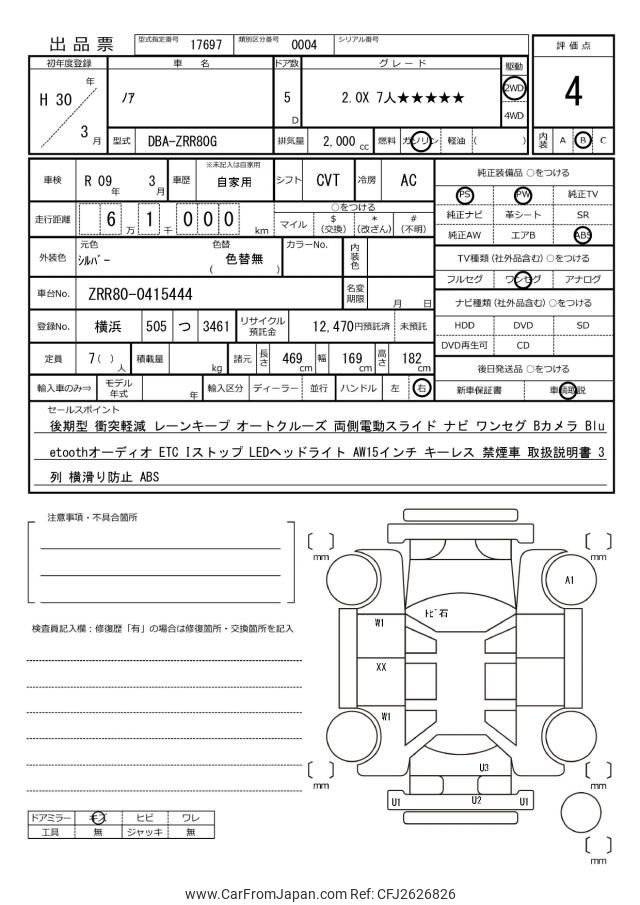 出品票 型式指定番号 17697 類別区分番号 0004 シリアル番号
評価点
4
内装 A B C
初年度登録 車名 ドア数 グレード 駆動
H 30 年 ノア 5 D 2.0X 7人★★★★★ 2WD
4WD
3 月 型式 DBA-ZRR80G 排気量 2,000 cc 燃料 ガソリン 軽油 ( )
車検 R 09 年 3 月 車歴 ※未記入は自家用 自家用 シフト CVT 冷房 AC
走行距離 6 万 1 千 0 0 0 km ○をつける
マイル $ (交換) * (改ざん) # (不明)
外装色 元色 シルバー 色替 ( 色替無 ) カラーNo. 内装色
車台No. ZRR80-0415444 名変期限 月 日
登録No. 横浜 505 つ 3461 リサイクル預託金 12,470円預託済 未預託
定員 7( )人 積載量 kg 諸元 長さ 469cm 幅 169cm 高さ 182cm
輸入車のみ⇒ モデル年式 年 輸入区分 ディーラー 並行 ハンドル 左 右
純正装備品 ○をつける
PS PW 純正TV
純正ナビ 革シート SR
純正AW エアB ABS
TV種類(社外品含む) ○をつける
フルセグ ワンセグ アナログ
ナビ種類(社外品含む) ○をつける
HDD DVD SD
DVD再生可 CD
後日発送品 ○をつける
新車保証書 車輌取説
セールスポイント
後期型 衝突軽減 レーンキープ オートクルーズ 両側電動スライド ナビ ワンセグ Bカメラ Blu
etoothオーディオ ETC Iストップ LEDヘッドライト AW15インチ キーレス 禁煙車 取扱説明書 3
列 横滑り防止 ABS
注意事項・不具合箇所
検査員記入欄：修復歴「有」の場合は修復箇所・交換箇所を記入
ドアミラー キズ ヒビ ワレ
工具 無 ジャッキ 無
mm
mm
A1
トビ石
W1
XX
W1
U3
mm
mm
U1 U2 U1
mm
www.CarFromJapan.com Ref: CFJ2626826